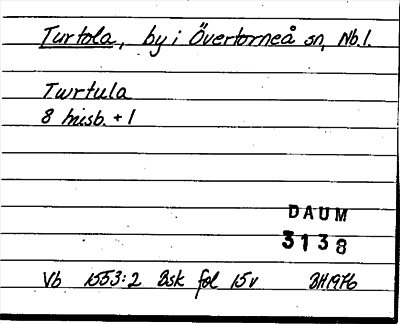 Turtola, by i Övertorneå sn, Nb.l.
Twrtula
8 husb. + 1
DAUM
3138
Vb 1553:2 Bsk fol 15v BH1976